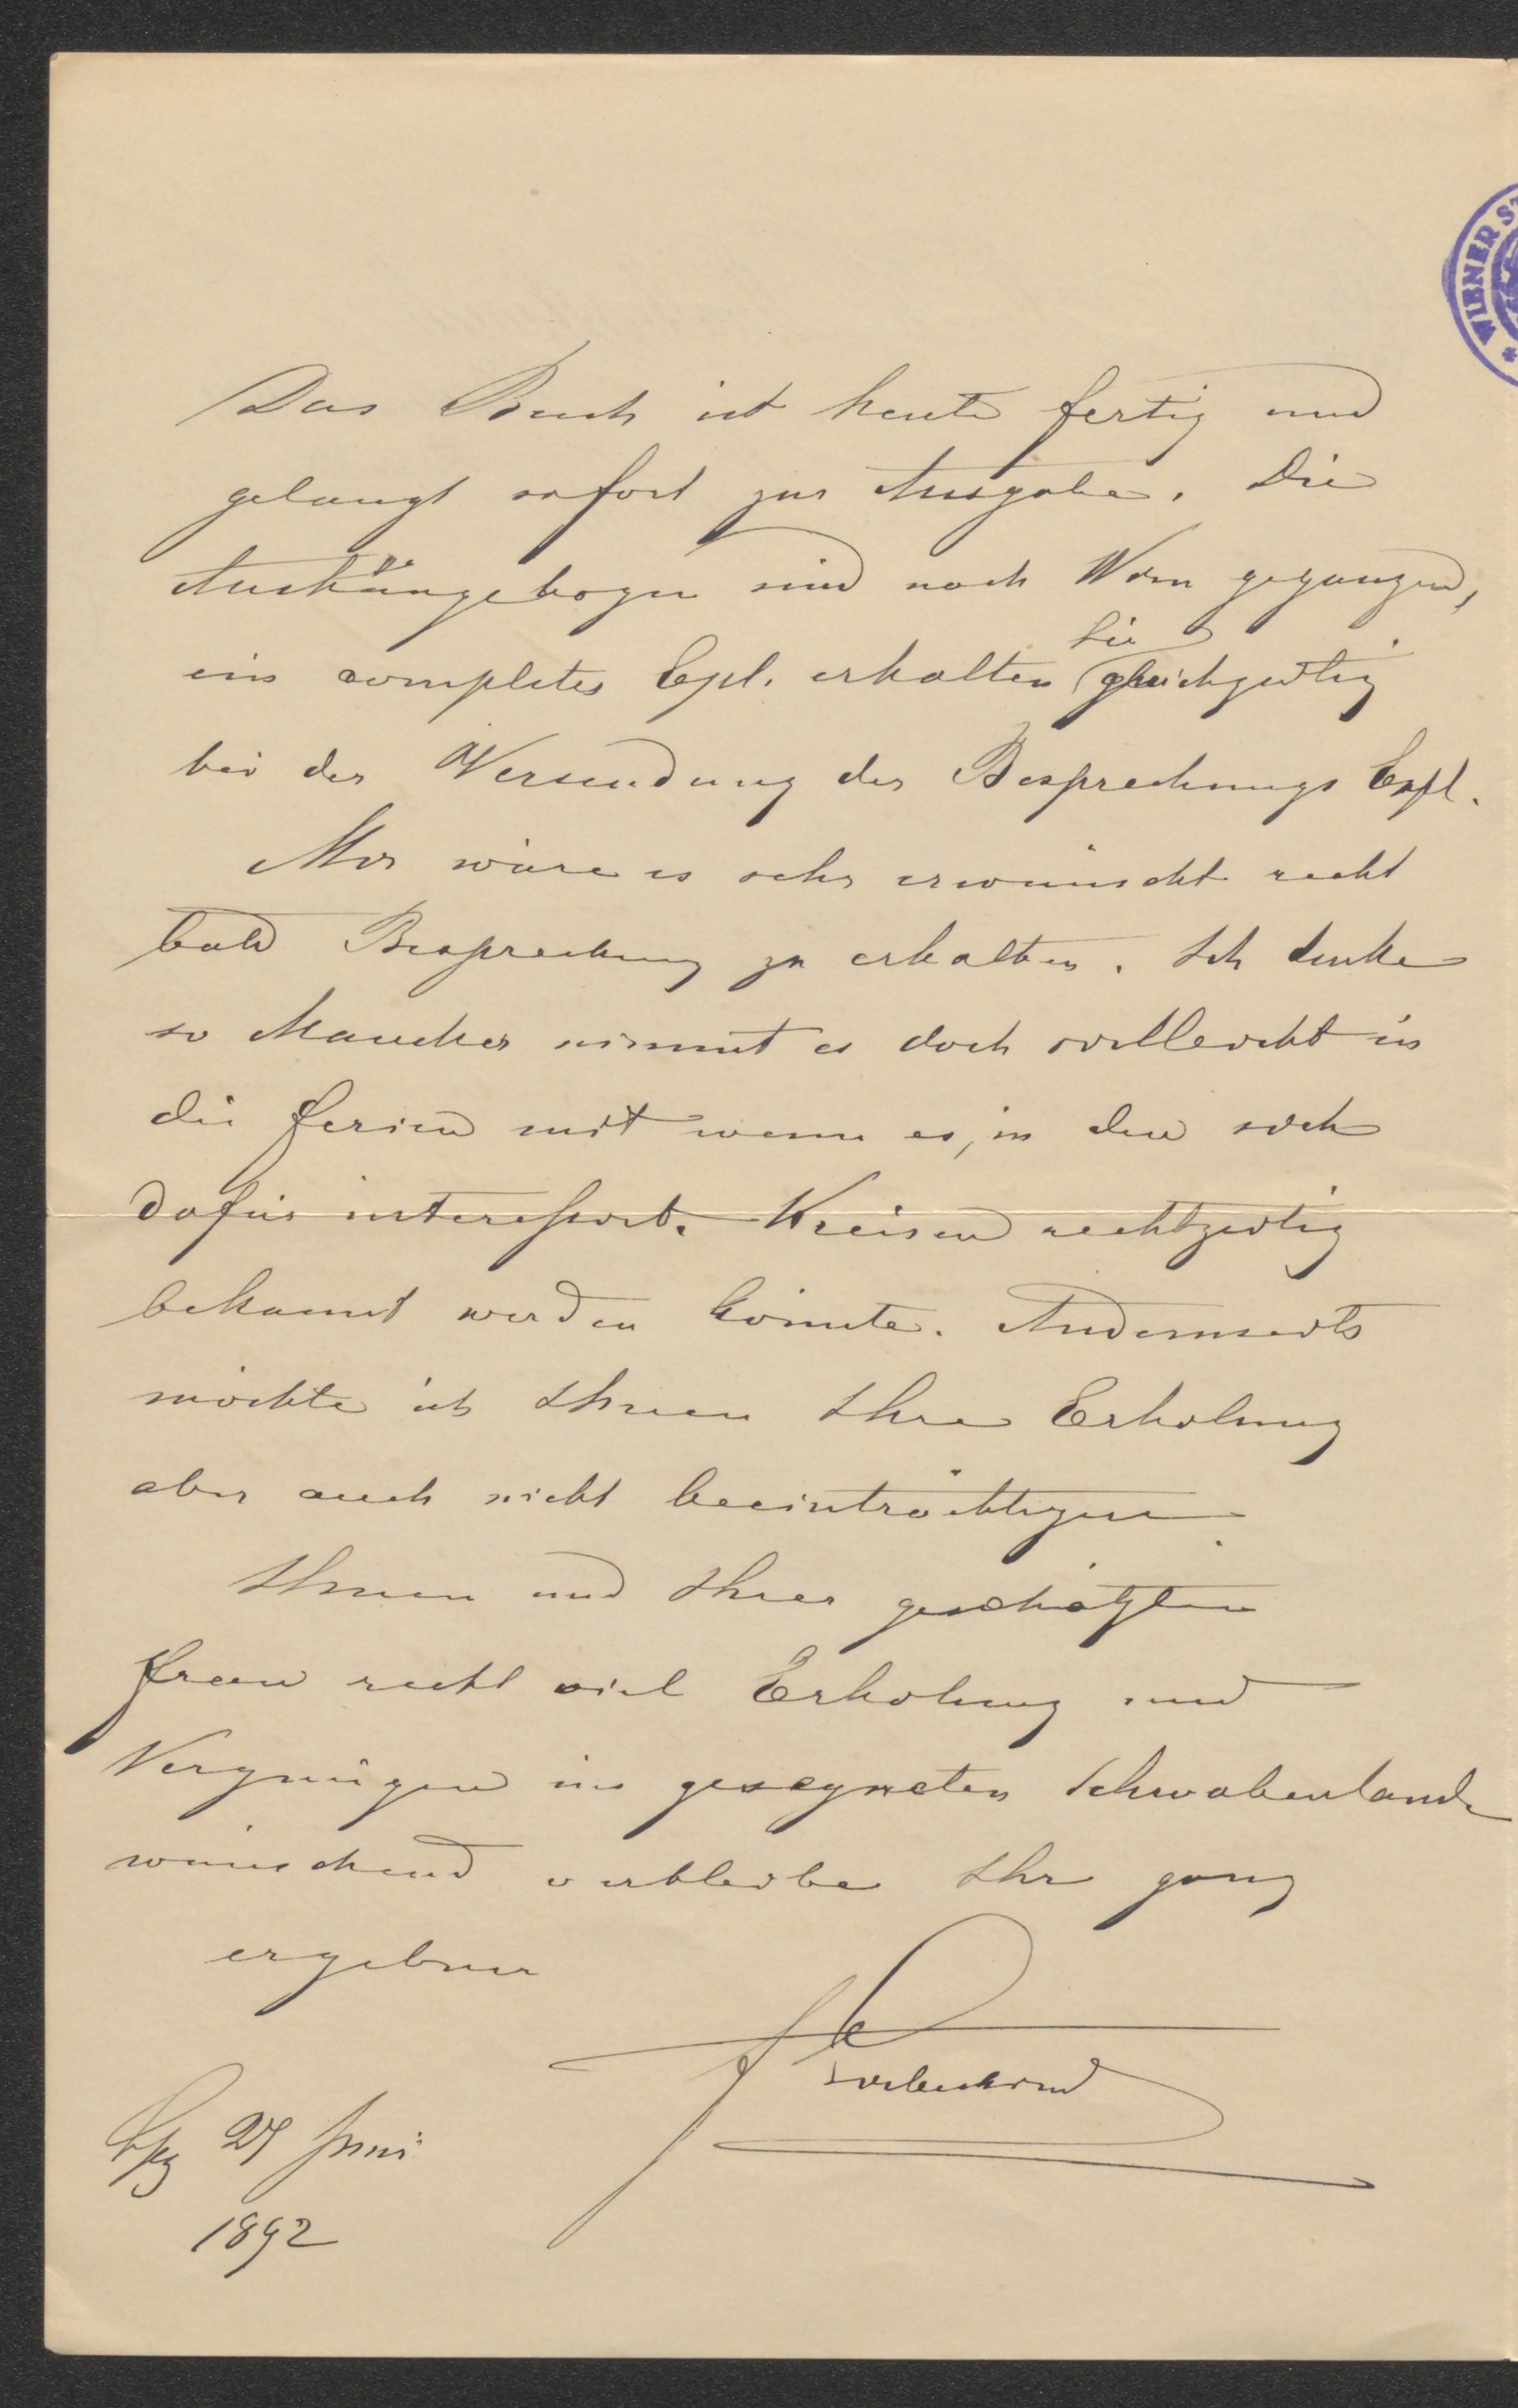 WIENER ST
Das Buch ist heute fertig und
gelangt sofort zur Ausgabe. Die
Aushängebogen sind nach Wien gegangen,
ein completes Expl. erhalten Sie gleichzeitig
bei der Versendung der Besprechungs Expl.
Mir wäre es sehr erwünscht recht
bald Besprechung zu erhalten. Ich denke
so Mancher nimmt es doch vielleicht in
die Ferien mit wenn es, in den sich
dafür interessirt. Kreisen rechtzeitig
bekannt werden könnte. Andernseits
möchte ich Ihnen Ihre Erholung
aber auch nicht beeinträchtigen.
Ihnen und Ihrer geschätzten
Frau recht viel Erholung und
Vergnügen im gesegneten Schwabenlande
wünschend verbleibe Ihr ganz
ergebener
Lpz 27 Juni
1892